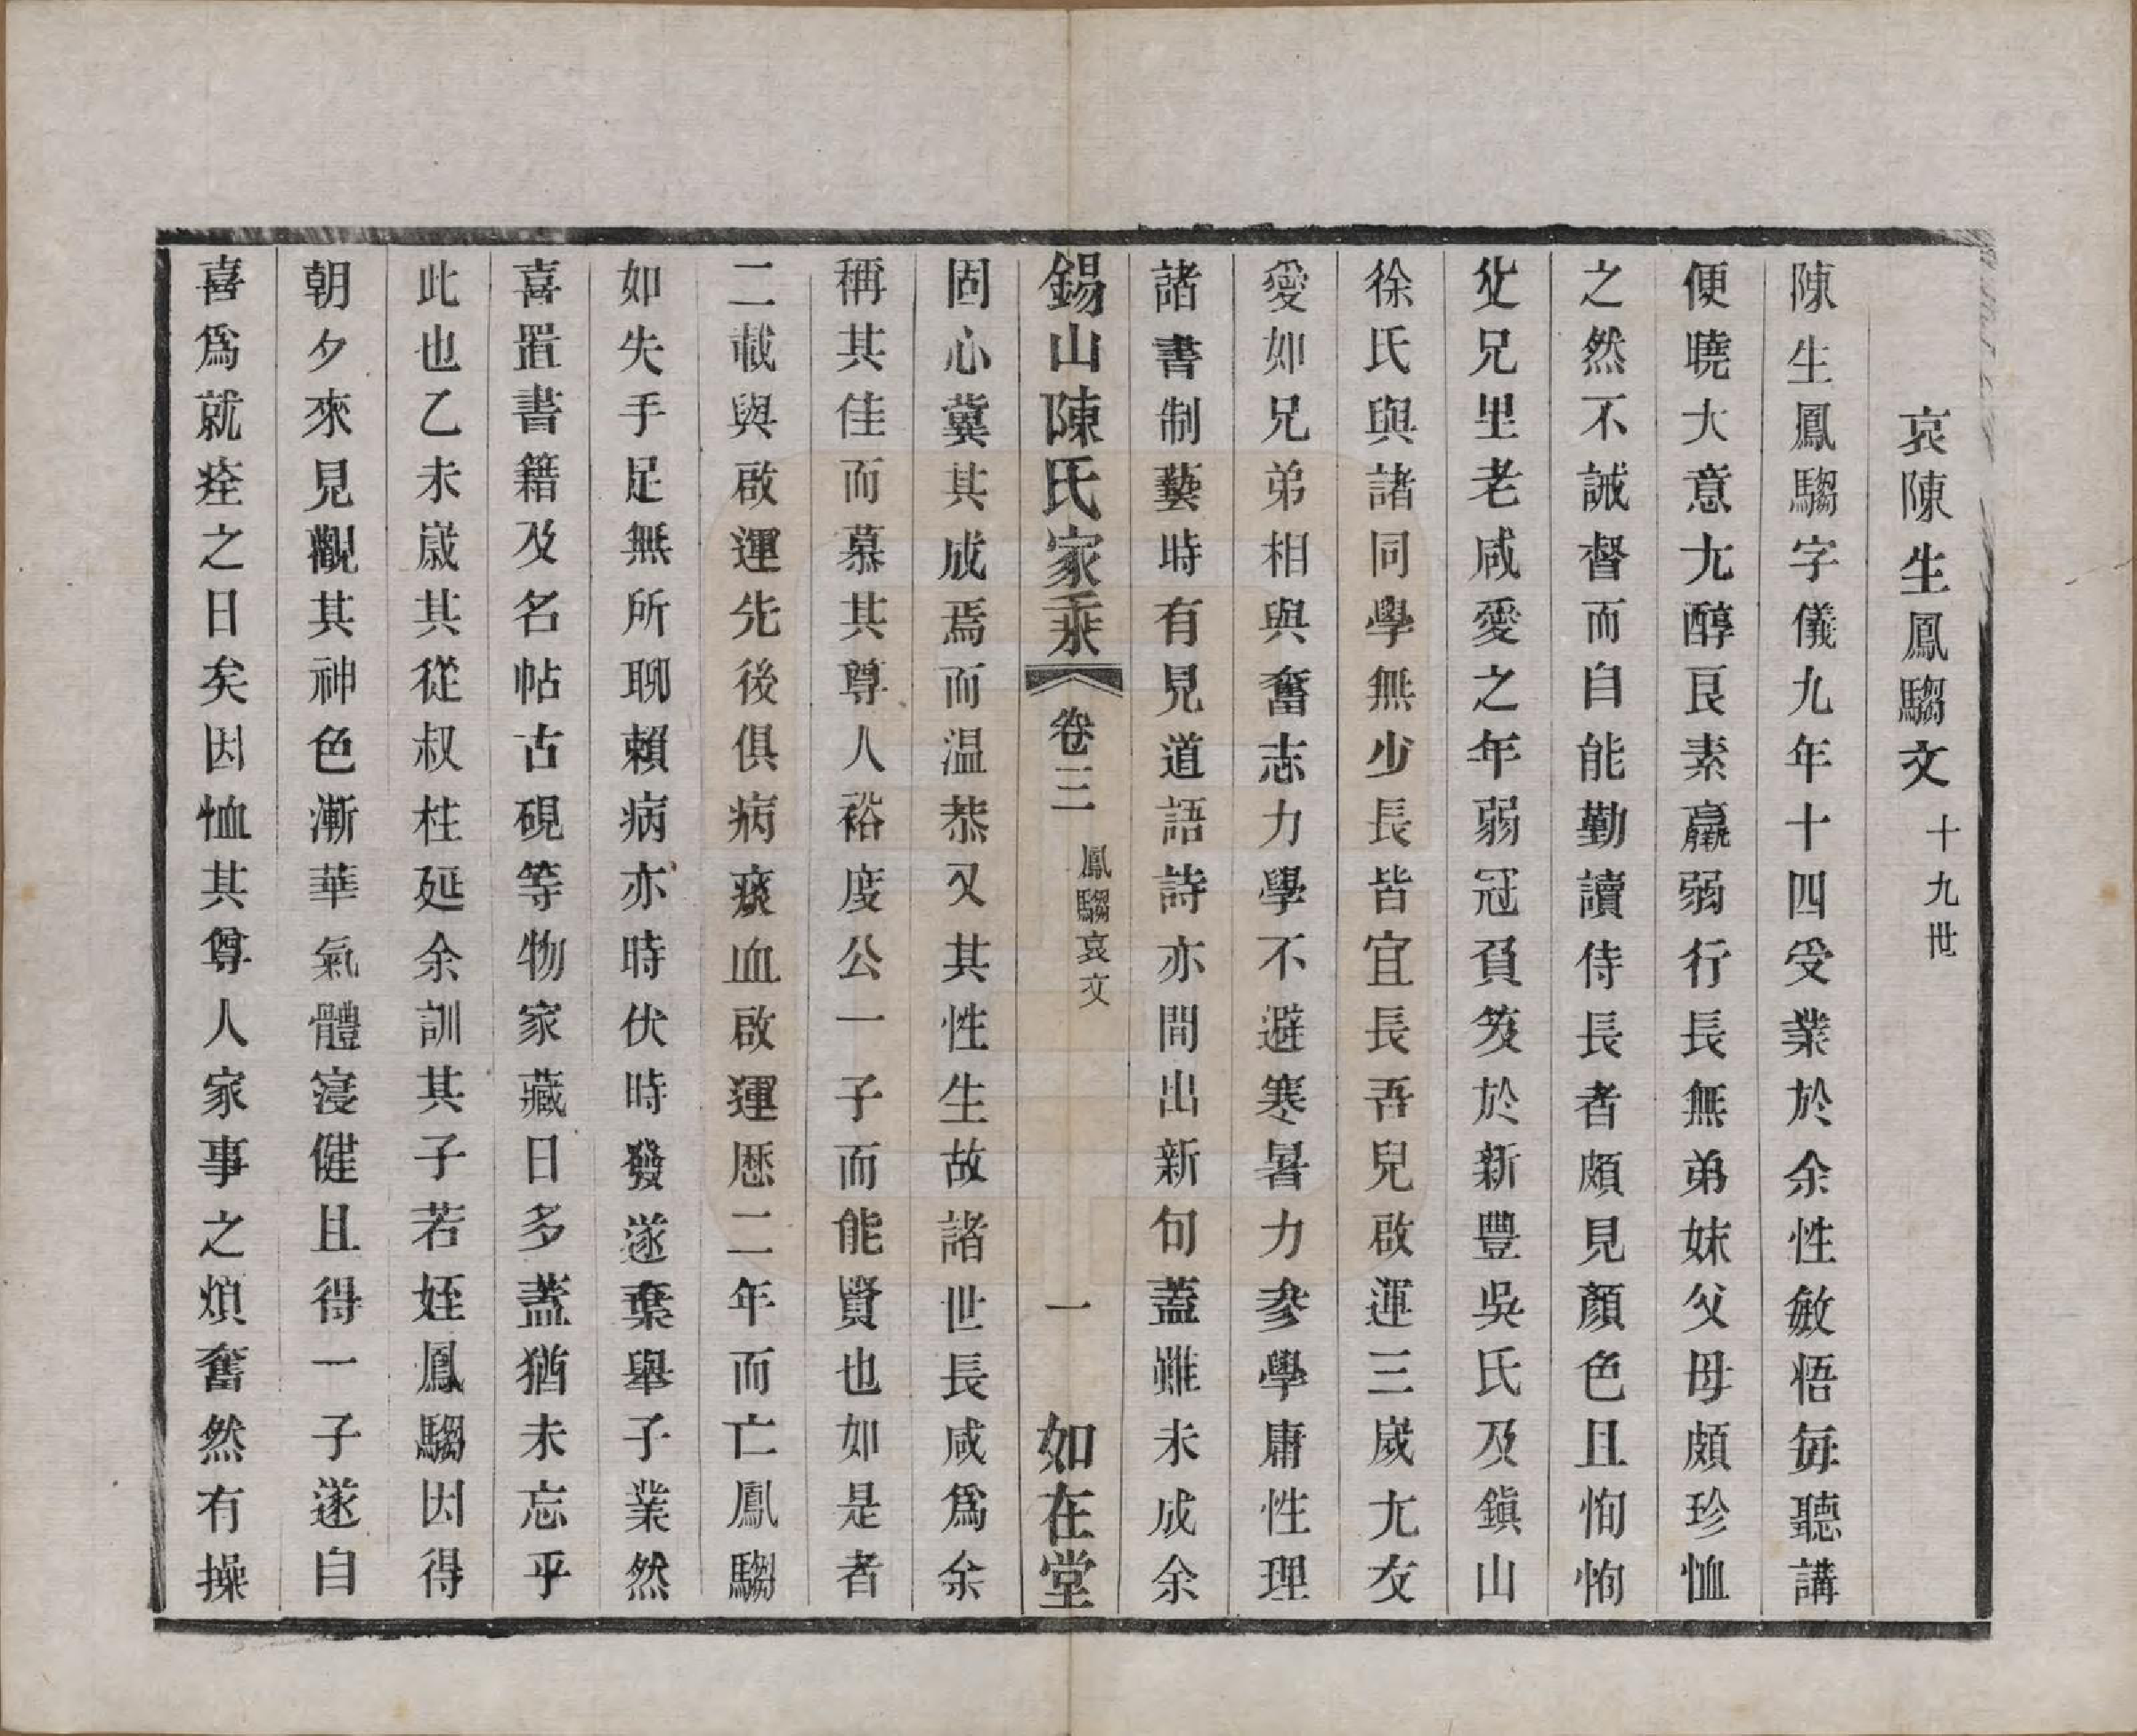 哀陳生鳳騶文 十九世
陳生鳳騶字儀九年十四受業於余性敏悟每聽講
便曉大意尤醇良素羸弱行長無弟妹父母頗珍恤
之然不誡督而自能勤讀侍長者頗見顏色且恂恂
父兄里老咸愛之年弱冠負笈於新豐吳氏及鎮山
徐氏與諸同學無少長皆宜長吾兒啟運三歲尤友
愛如兄弟相與奮志力學不避寒暑力參學庸性理
諸書制藝時有見道語詩亦間出新句蓋雖未成余
錫山陳氏家乘 卷三 鳳騶哀文 一 如在堂
固心冀其成焉而温恭又其性生故諸世長咸爲余
稱其佳而慕其尊人裕度公一子而能賢也如是者
二載與啟運先後俱病痰血啟運歷二年而亡鳳騶
如失手足無所聊賴病亦時伏時發遂棄舉子業然
喜置書籍及名帖古硯等物家藏日多蓋猶未忘乎
此也乙未歲其從叔柱延余訓其子若姪鳳騶因得
朝夕來見觀其神色漸華氣體寖健且得一子遂自
喜爲就痊之日矣因恤其尊人家事之煩奮然有操